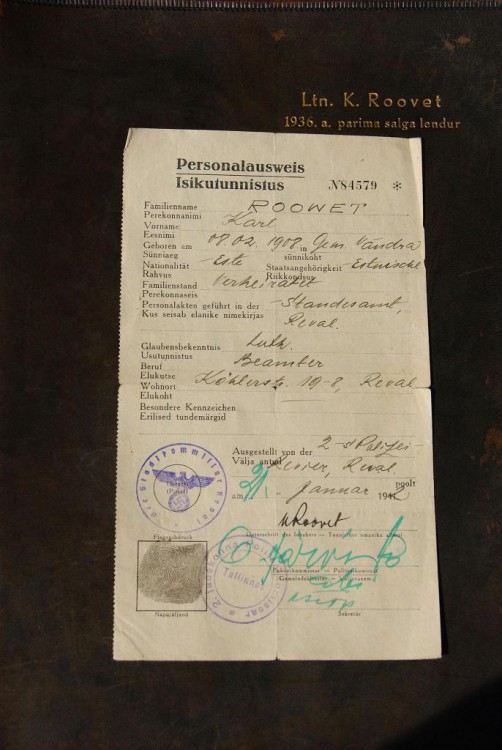 Ltn. K. Roovet
1936. a. parima salga lendur
Personalausweis
Isikutunnistus
№84579 *
Familienname ROOWET
Perekonnanimi
Vorname Karl
Eesnimi
Geboren am 08.02. 1908. in Gem. Vandra
Sünniaeg sünnikoht
Nationalität Este Staatsangehörigkeit Estnische
Rahvus Riikkondsus
Familienstand Verheiratet
Perekonnaseis
Personalakten geführt in der Standesamt,
Kus seisab elanike nimekirjas Reval.
Glaubensbekenntnis Luth.
Usutunnistus
Beruf Beamter
Elukutse
Wohnort Köhlerstr. 19-8, Reval
Elukoht
Besondere Kennzeichen
Erilised tundemärgid
Ausgestellt von der 2-s Polizei-
Välja antud Revier, Reval
am Januar 194
KRoovet
Unterschrift des Inhabers — Tunnistuse omaniku allkiri
Der Stadtkommissar Reval
Fingerabdruck
Tallinna
Napajäljend
Sekretär